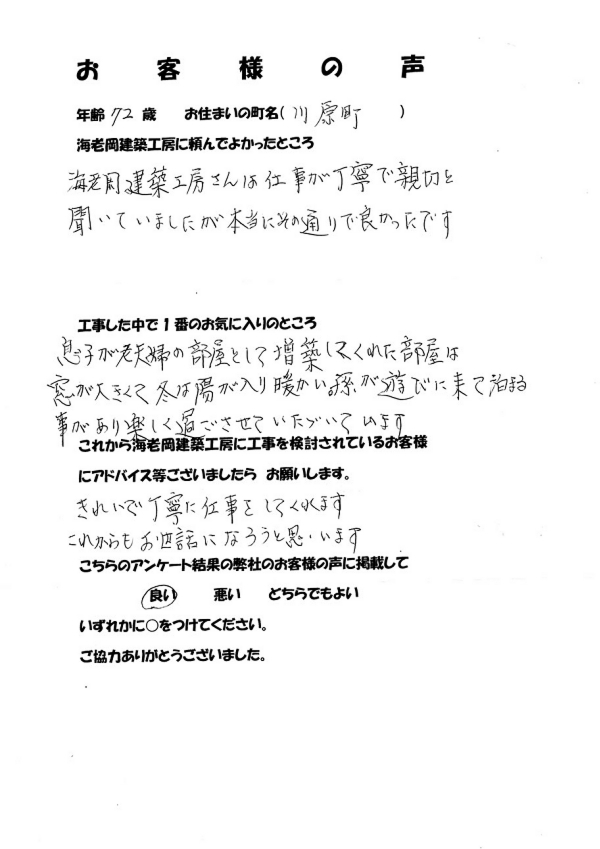 お客様の声
年齢 72 歳 お住まいの町名( 川原町 )
海老岡建築工房に頼んでよかったところ
海老岡建築工房さんは仕事が丁寧で親切と
聞いていましたが本当にその通りで良かったです
工事した中で1番のお気に入りのところ
息子が老夫婦の部屋として増築してくれた部屋は
窓が大きくて冬は陽が入り暖かい。孫が遊びに来て泊まる
事があり楽しく過ごさせていただいています
これから海老岡建築工房に工事を検討されているお客様
にアドバイス等ございましたら お願いします。
きれいで丁寧に仕事をしてくれます
これからもお世話になろうと思います
こちらのアンケート結果の弊社のお客様の声に掲載して
良い 悪い どちらでもよい
いずれかに○をつけてください。
ご協力ありがとうございました。